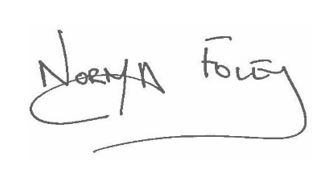 NORMA FOLEY